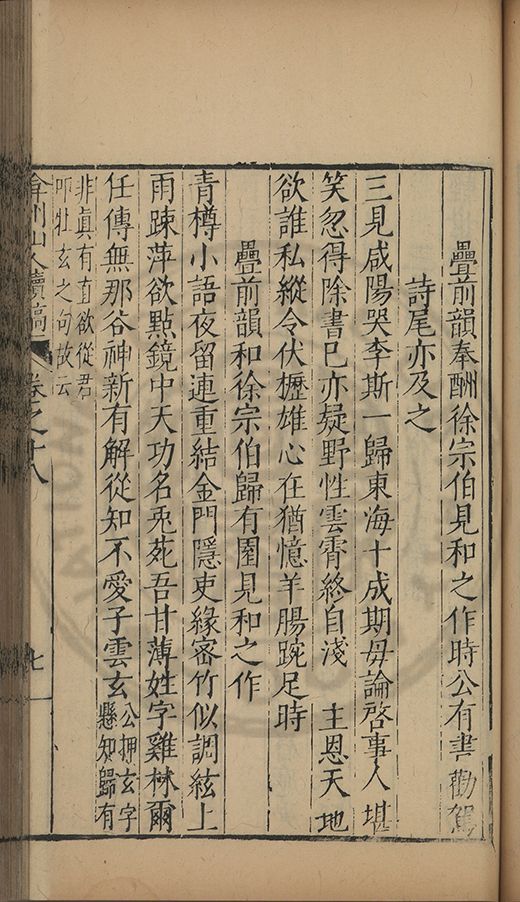 疊前韻奉酬徐宗伯見和之作時公有書勸駕
詩尾亦及之
三見咸陽哭李斯一歸東海十成期毋論啓事人堪
笑忽得除書已亦疑野性雲霄終自淺 主恩天地
欲誰私縱令伏櫪雄心在猶憶羊腸踠足時
疊前韻和徐宗伯歸有園見和之作
青樽小語夜留連重結金門隱吏緣密竹似調絃上
雨踈萍欲點鏡中天功名兎苑吾甘薄姓字雞林爾
任傳無那谷神新有解從知不愛子雲玄
公押玄字
懸知歸有
非真有直欲從君
叩牡玄之句故云
弇州山人續稿 卷之十八 七